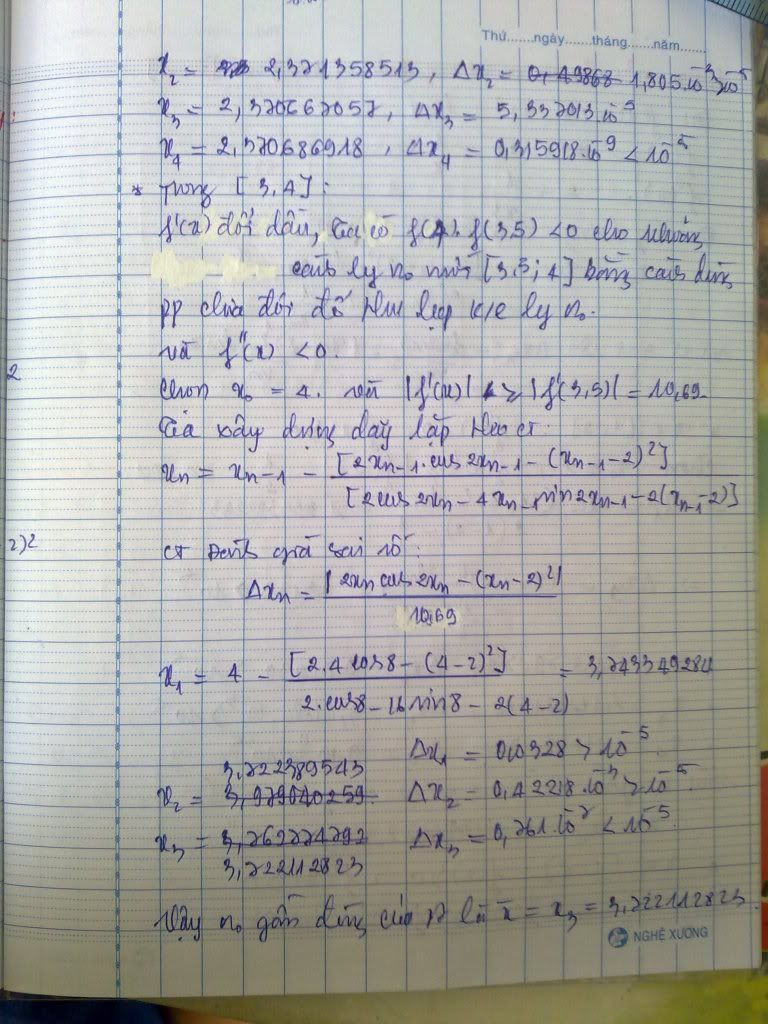 Thứ.......ngày.......tháng.......năm.......
x₂ = 2,371358513, Δx₂ = 0,49868 1,805.10⁻³ > 10⁻⁵
x₃ = 2,370687057, Δx₃ = 5,337013.10⁻⁵
x₄ = 2,370686918, Δx₄ = 0,315918.10⁻⁹ < 10⁻⁵
* Trong [3,4]:
f'(x) đổi dấu, ta có f(4). f(3,5) < 0 cho khoảng
cách ly no mới [3,5; 4] bằng cách dùng
pp chia đôi để thu hẹp k/c ly no.
và f''(x) < 0.
2
Chọn x₀ = 4. và |f'(x)| ≥ |f'(3,5)| = 10,69
Ta xây dựng dãy lặp theo ct:
xₙ = xₙ₋₁ - [2xₙ₋₁.cos2xₙ₋₁ - (xₙ₋₁-2)²]
[2cos2xₙ - 4xₙ₋₁sin2xₙ₋₁ - 2(xₙ₋₁-2)]
2)2
ct đánh giá sai số:
Δxₙ = |2xₙcos2xₙ - (xₙ-2)²|
10,69
x₁ = 4 - [2.4cos8 - (4-2)²] = 3,743349284
2.cos8 - 16sin8 - 2(4-2)
Δx₁ = 0,0328 > 10⁻⁵.
3,722389543
x₂ = 3,979040259 Δx₂ = 0,42218.10⁻³ > 10⁻⁵.
x₃ = 3,762774792 Δx₃ = 0,761.10⁻⁷ < 10⁻⁵.
3,722112823
Vậy no gần đúng của pt là x̄ = x₃ = 3,722112823.
NGHỆ XƯƠNG